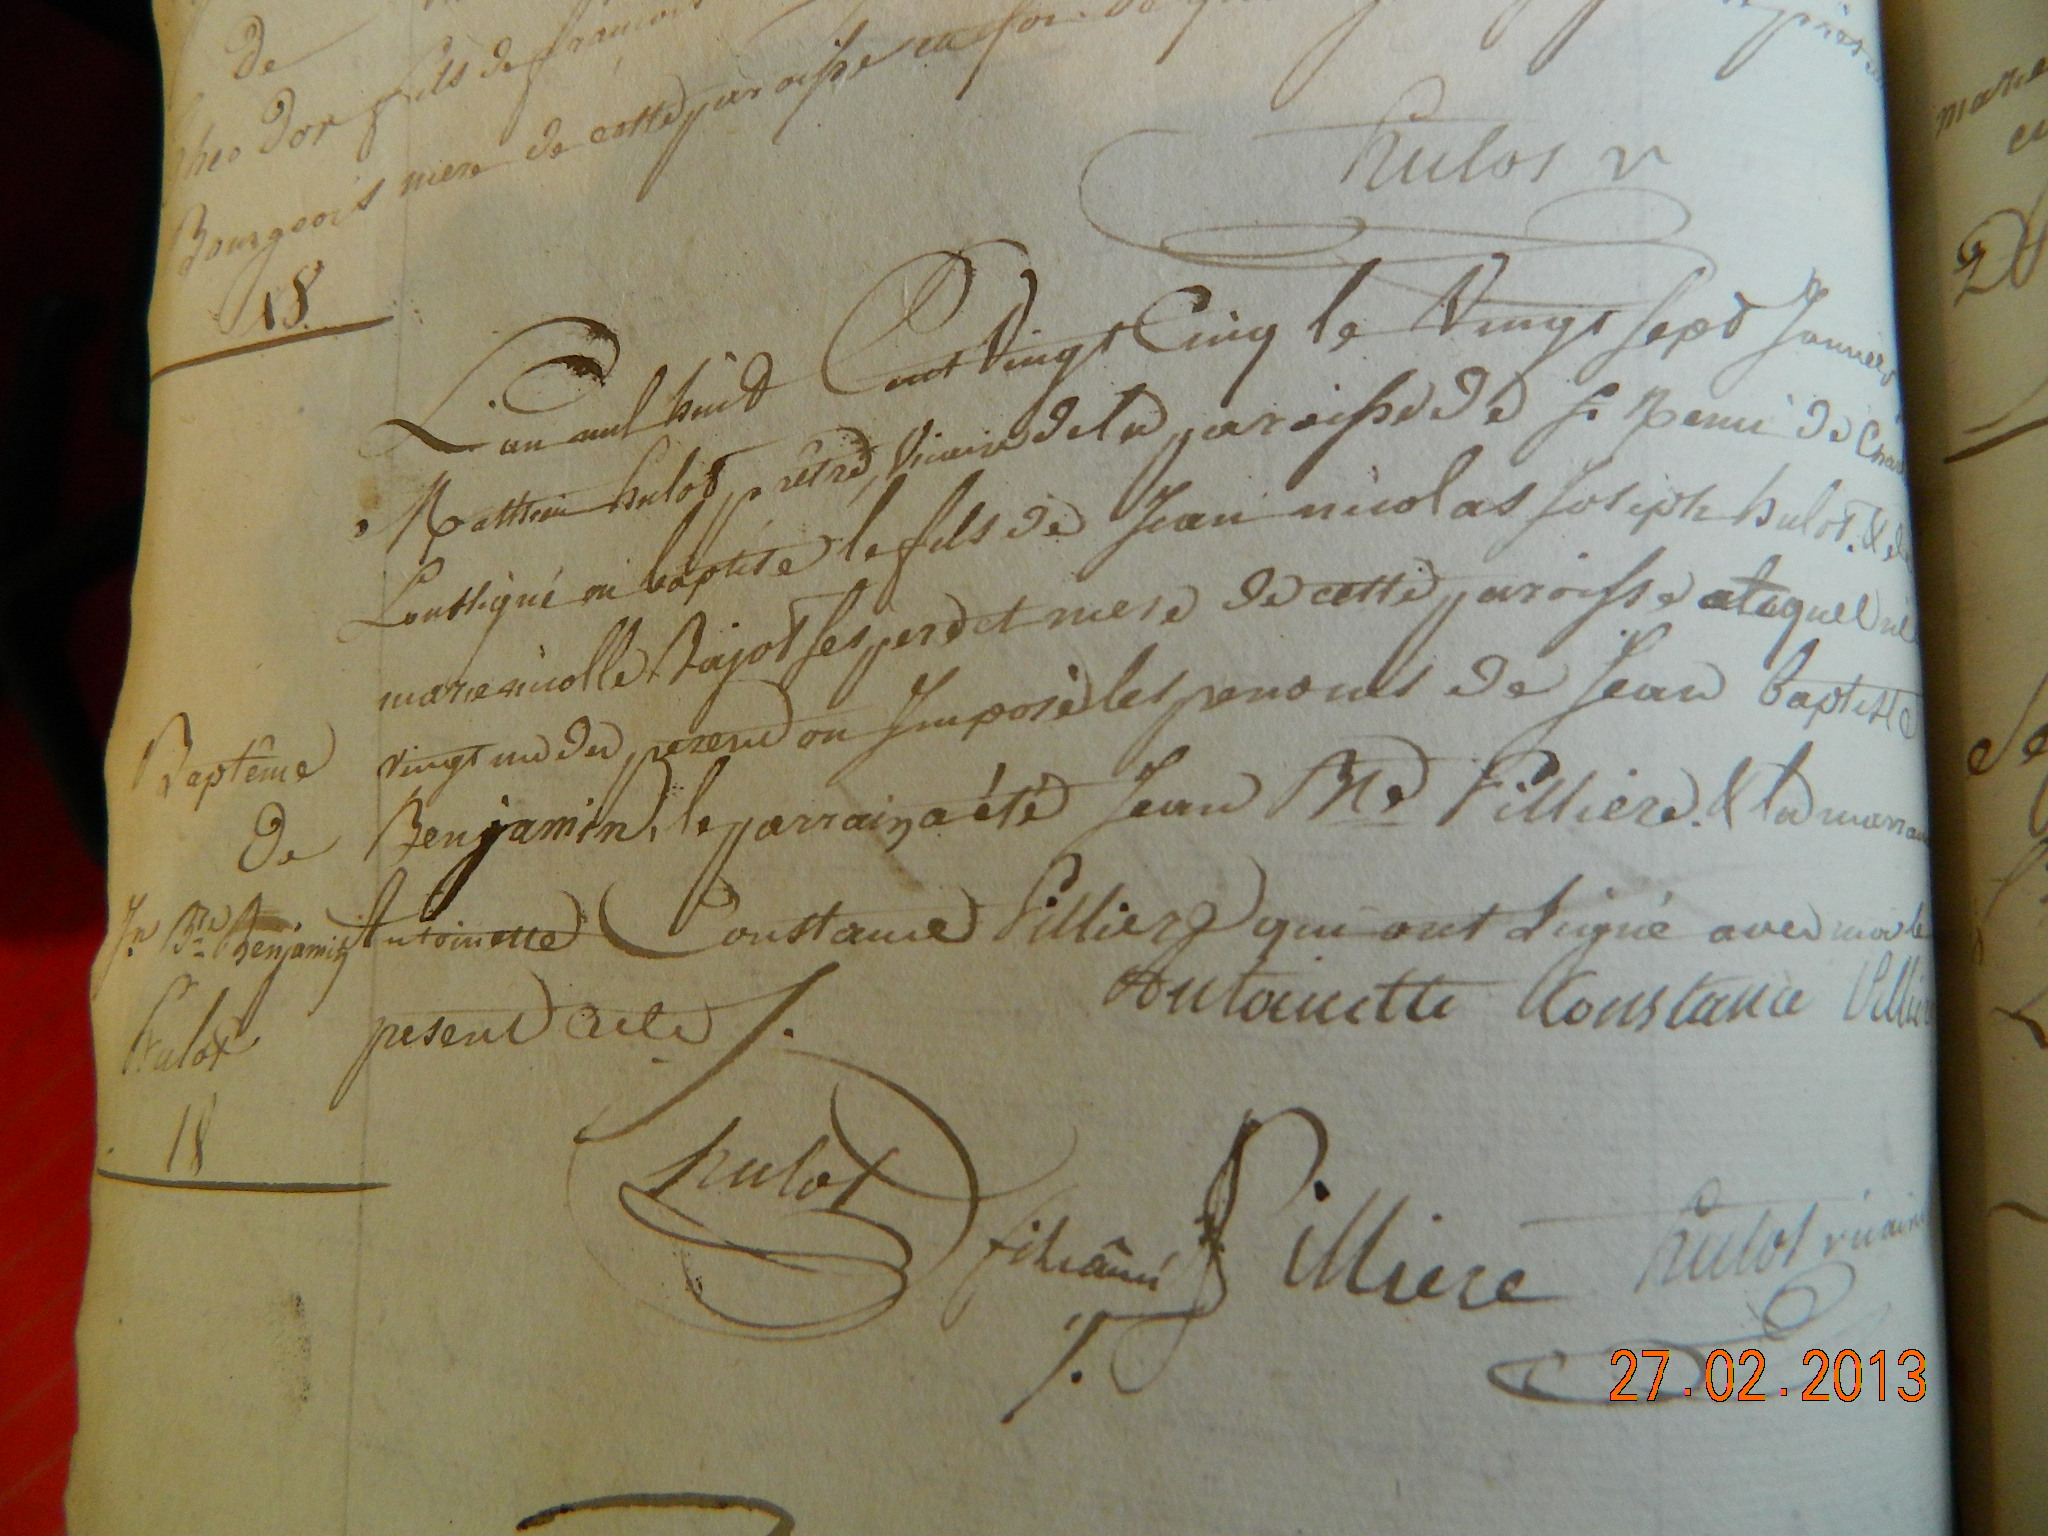 de
fils de francois
theodor
mere de cette paroisse en foi de
Bourgeois
hulot v
18.
L'an mil huit Cent Vingt Cinq le Vingt sept Janvier
Matthieu hulot, prêtre, Vicaire de la paroisse de St Remi de Char
Soussigné ai baptisé le fils de Jean nicolas Joseph hulot. & de
marie nicolle Bajot ses pere et mere de cette paroisse
vingt un du present on Imposé les prenoms de Jean baptiste
Benjamin, le parrain a été Jean Bte Pilliere. & la marraine
Antoinette Constance Pilliere qui ont Signé avec moi le
present acte ./.
Baptême
de
Jn Bte Benjamin
hulot
18
Antoinette Constance Pillier
hulot
Pilliere
hulot vicaire
27.02.2013